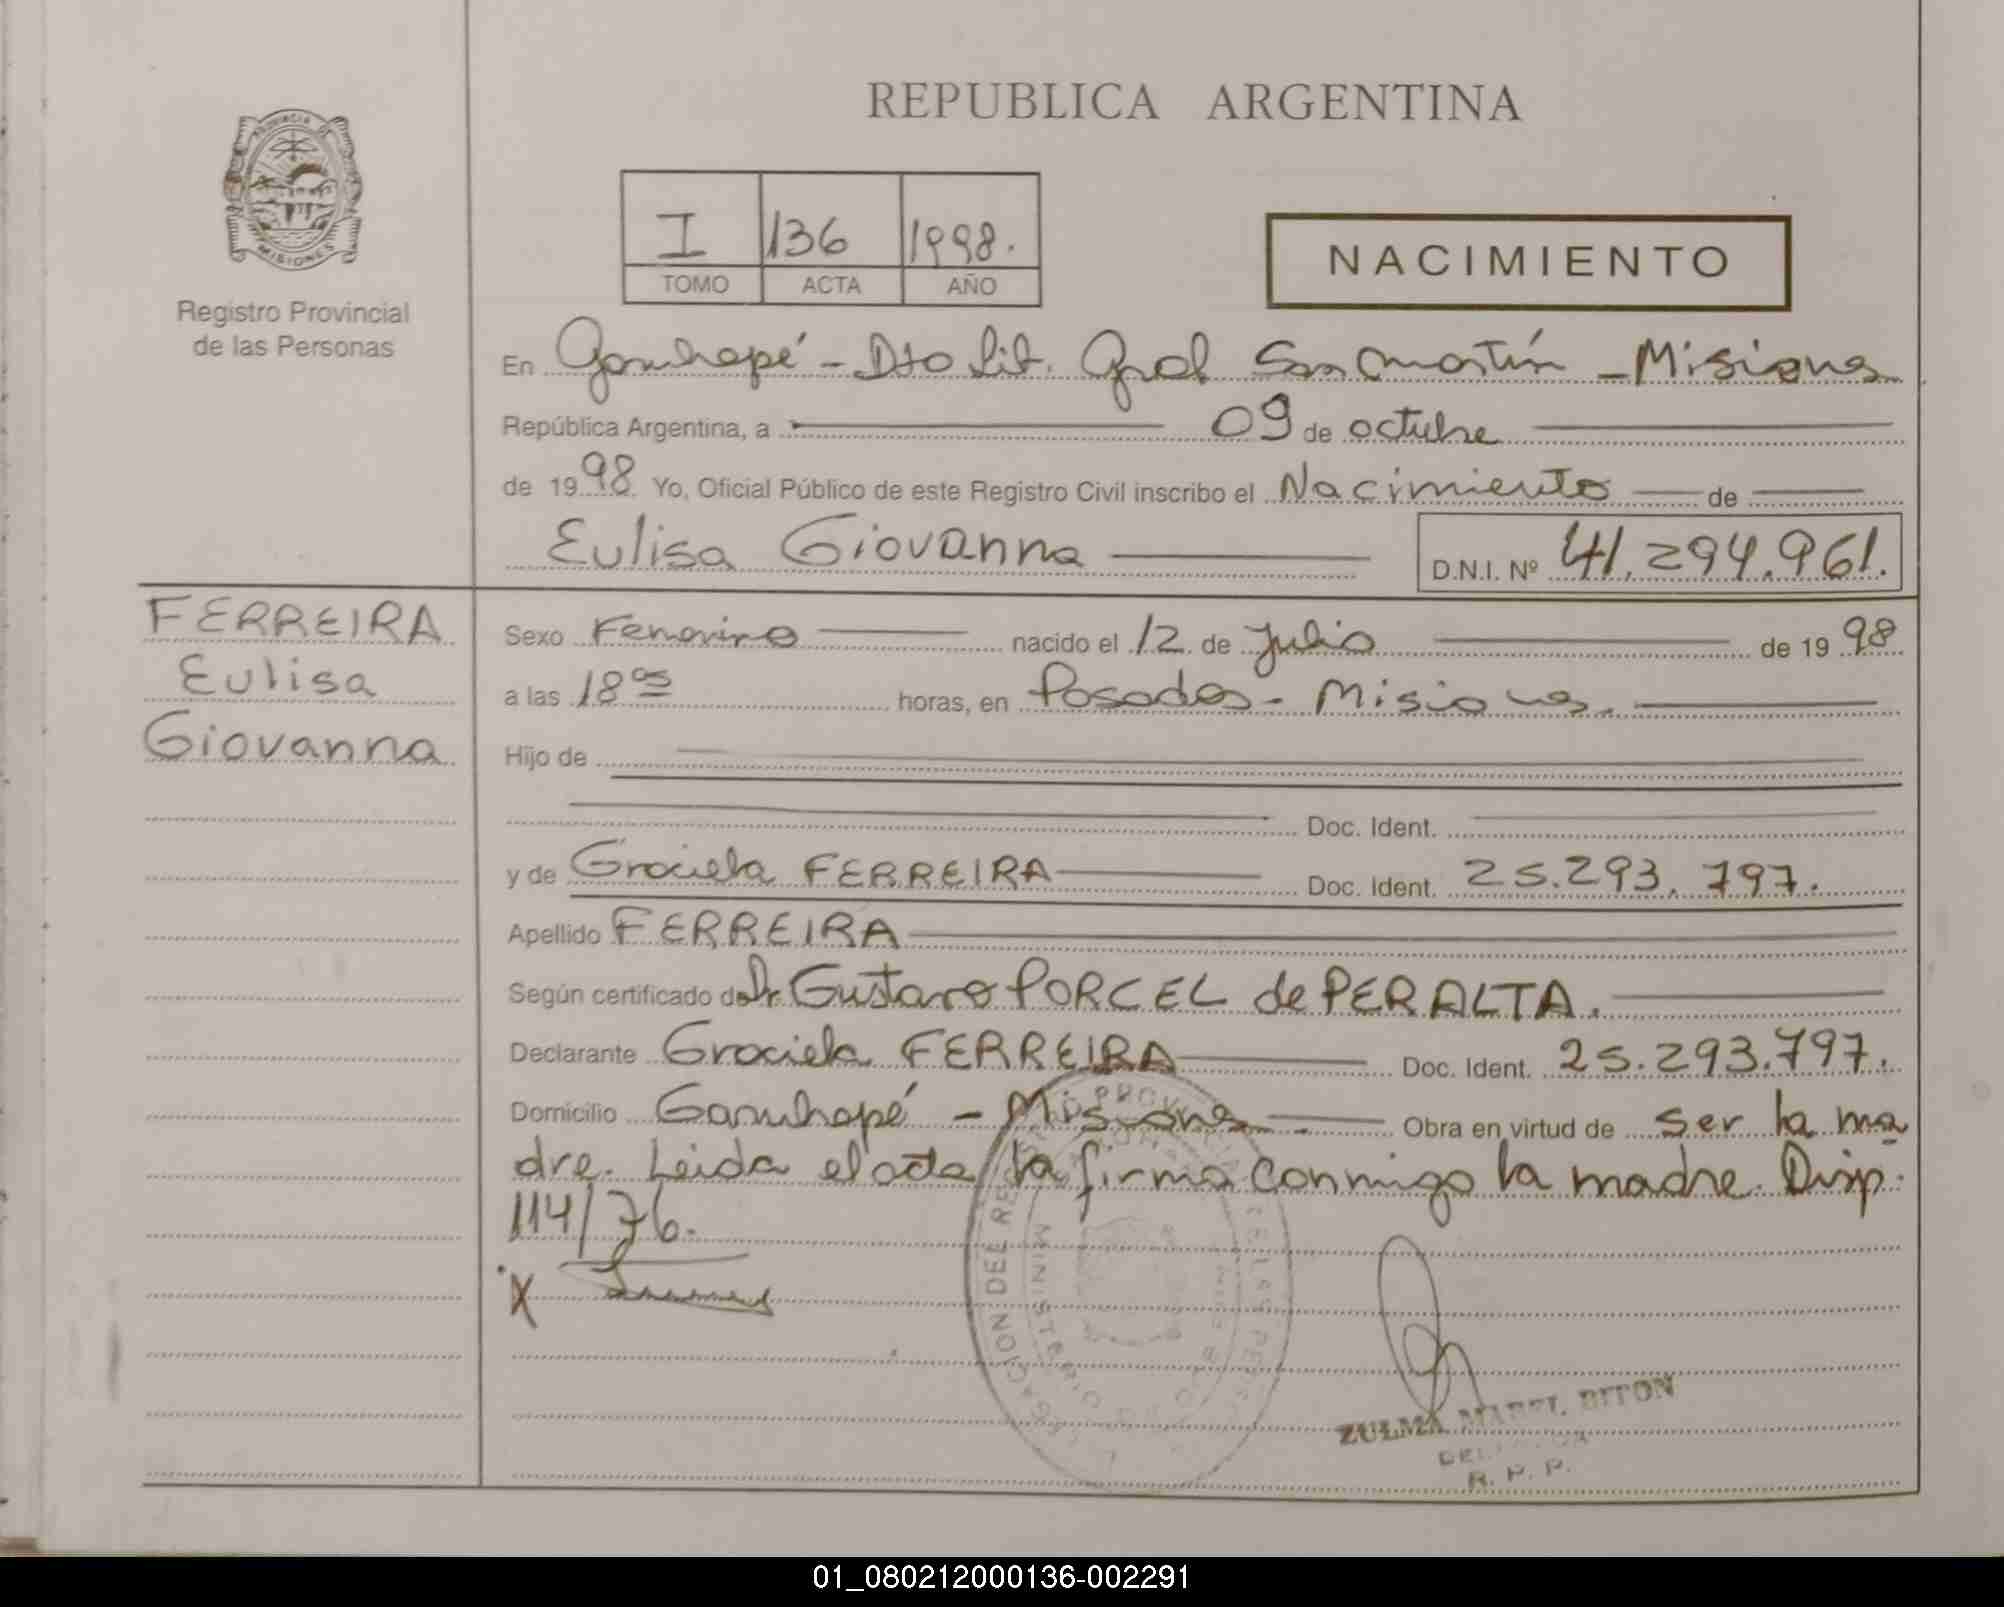 REPUBLICA ARGENTINA
PROVINCIA DE
MISIONES
Registro Provincial
de las Personas
I 136 1998.
TOMO ACTA AÑO
NACIMIENTO
En Garuhapé - Dto Lib. Gral San Martín - Misiones
República Argentina, a 09 de octubre
de 1998. Yo, Oficial Público de este Registro Civil inscribo el Nacimiento de
Eulisa Giovanna D.N.I. Nº 41.294.961.
FERREIRA
Eulisa
Giovanna
Sexo Femenino nacido el 12 de Julio de 1998
a las 18 05 horas, en Posadas - Misiones.
Hijo de
Doc. Ident.
y de Graciela FERREIRA Doc. Ident. 25.293.797.
Apellido FERREIRA
Según certificado de Dr. Gustavo PORCEL de PERALTA.
Declarante Graciela FERREIRA Doc. Ident. 25.293.797.
Domicilio Garuhapé - Misiones. Obra en virtud de ser la ma
dre. Leida el acta la firma conmigo la madre. Disp.
114/76.
X
ZULMA MABEL BITON
R. P. P.
01_080212000136-002291